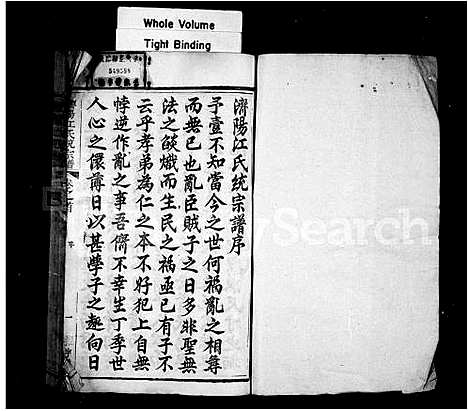 Whole Volume
Tight Binding
濟陽江氏統宗譜序
予壹不知當今之世何禍亂之相尋
而無已也亂臣賊子之日多非聖無
法之燄熾而生民之禍亟已有子不
云乎孝弟為仁之本不好犯上自無
悖逆作亂之事吾儕不幸生丁季世
人心之儇薄日以甚學子之趣向日
Search